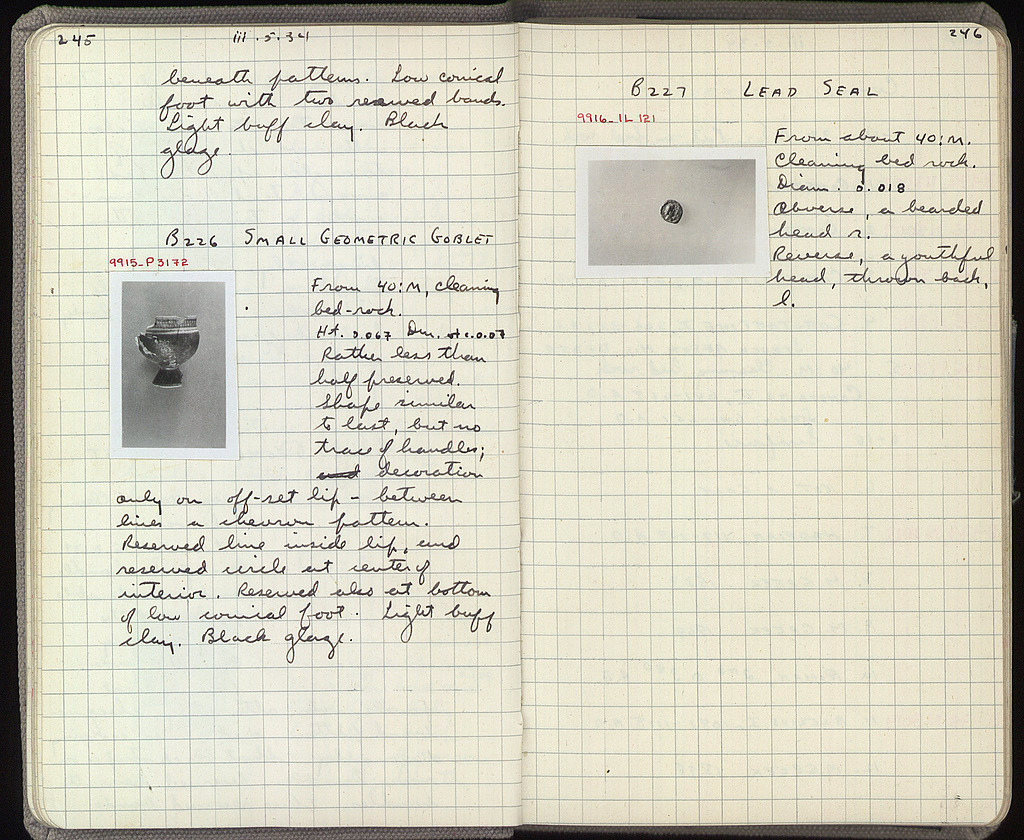 245
iii.5.34
beneath patterns. Low conical
foot with two reserved bands.
Light buff clay. Black
glaze.
B226 SMALL GEOMETRIC GOBLET
9915-P3172
From 40:M, cleaning
bed-rock.
Ht. 0.067 Dm. at c.0.07
Rather less than
half preserved.
Shape similar
to last, but no
trace of handles;
decoration
only on off-set lip - between
lines a chevron pattern.
Reserved line inside lip, and
reserved circle at center of
interior. Reserved also at bottom
of low conical foot. Light buff
clay. Black glaze.
246
B227 LEAD SEAL
9916-IL 121
From about 40:M.
Cleaning bed rock.
Diam. 0.018
Obverse, a bearded
head r.
Reverse, a youthful
head, thrown back,
l.